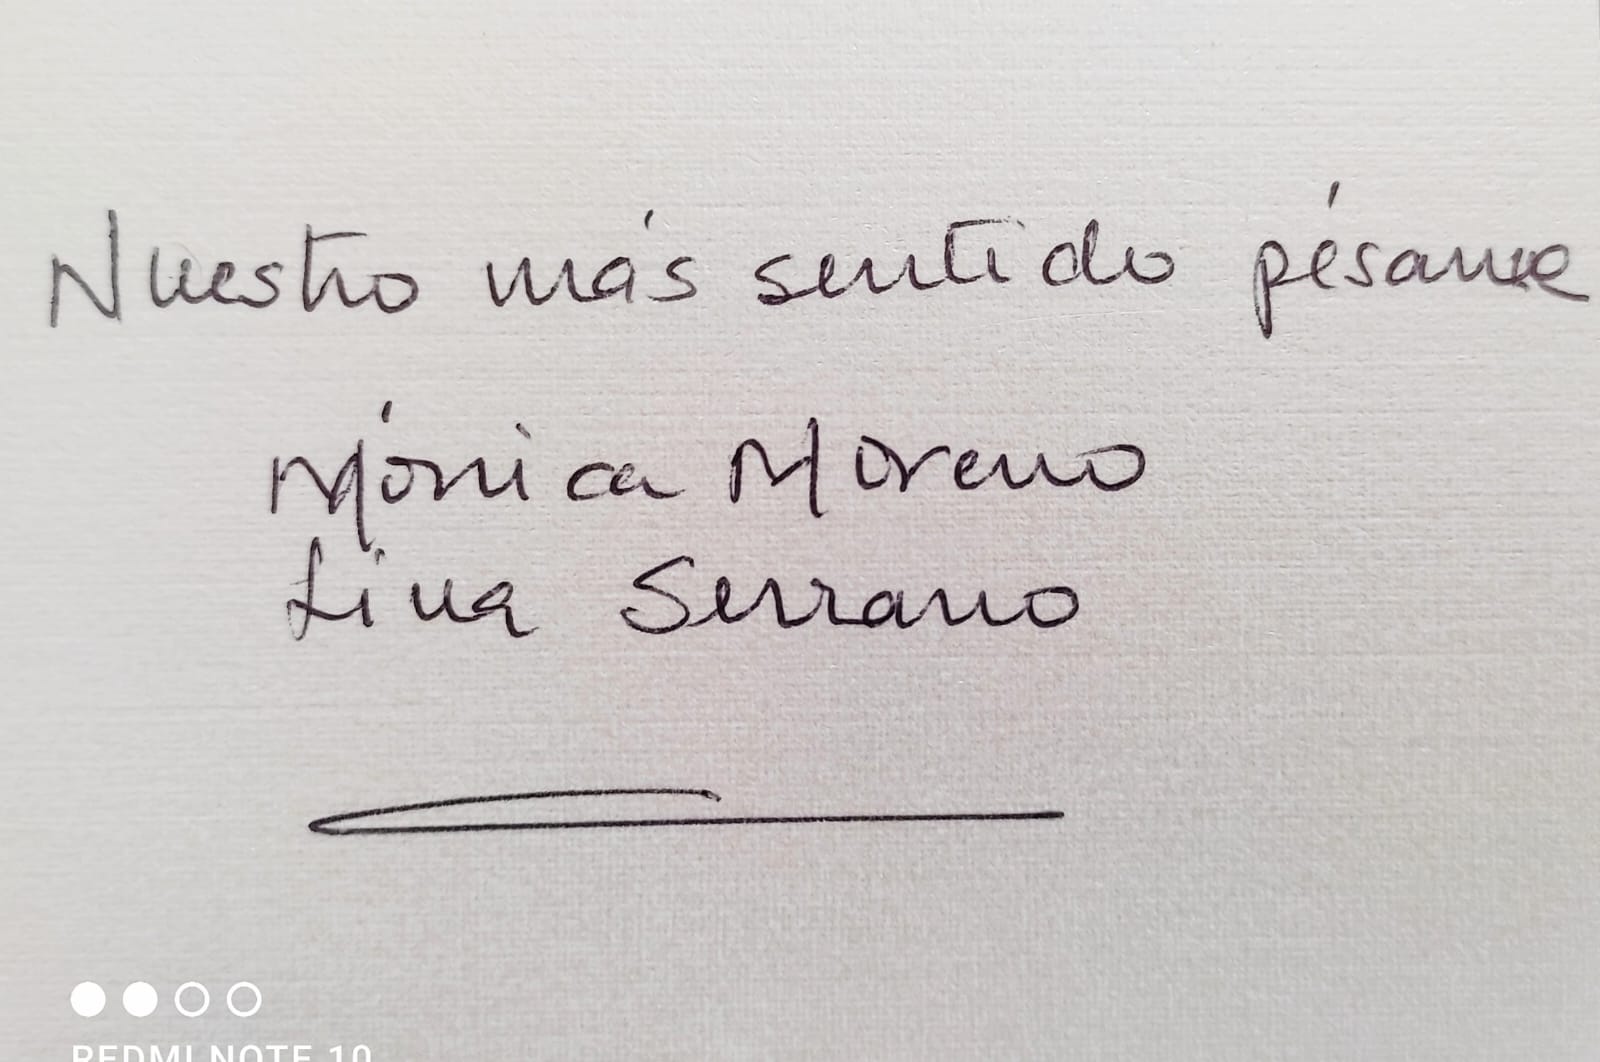 Nuestro más sentido pésame
Mónica Moreno
Lina Serrano
REDMI NOTE 10